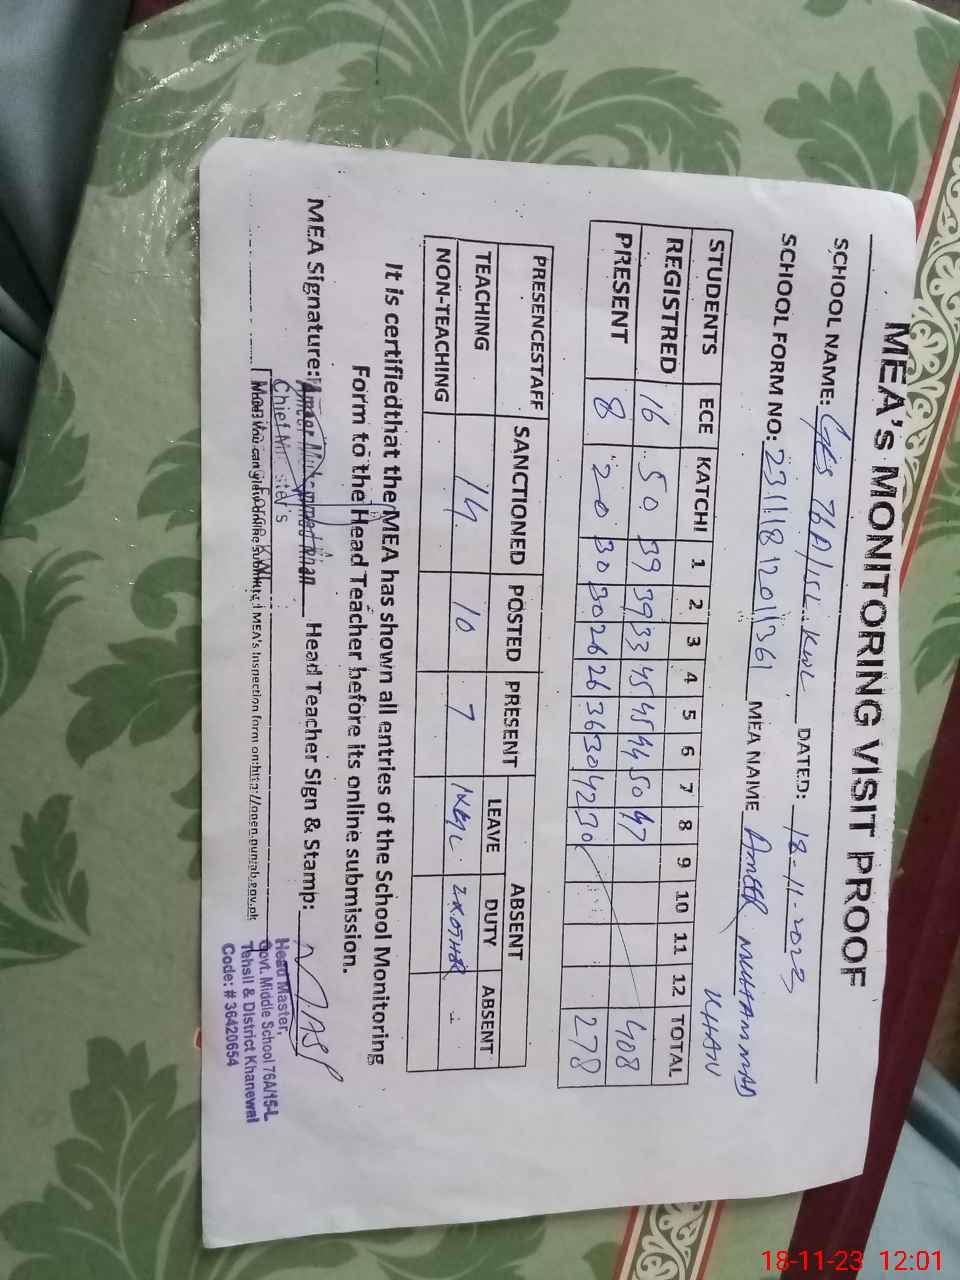 MEA's MONITORING VISIT PROOF
SCHOOL NAME: 76A/15L KWL DATED: 18-11-2023
SCHOOL FORM NO: 23111812011361 MEA NAME AMEER MUHAMMAD KHAN
STUDENTS ECE KATCHI 1 2 3 4 5 6 7 8 9 10 11 12 TOTAL
REGISTRED 16 50 39 39 33 45 45 44 50 47 408
PRESENT 8 20 30 30 26 26 36 30 42 30 278
PRESENCESTAFF SANCTIONED POSTED PRESENT ABSENT
LEAVE DUTY ABSENT
TEACHING 14 10 7 2XOTHER
NON-TEACHING
It is certifiedthat the MEA has shown all entries of the School Monitoring
Form to the Head Teacher before its online submission.
MEA Signature: Ameer Muhammad Khan Head Teacher Sign & Stamp:
Chief
Head Master,
Govt. Middle School 76A/15-L
Tehsil & District Khanewal
Code: # 36420654
Now you can view online submitted MEA's Inspection form on: http://open.punjab.gov.pk
18-11-23 12:01